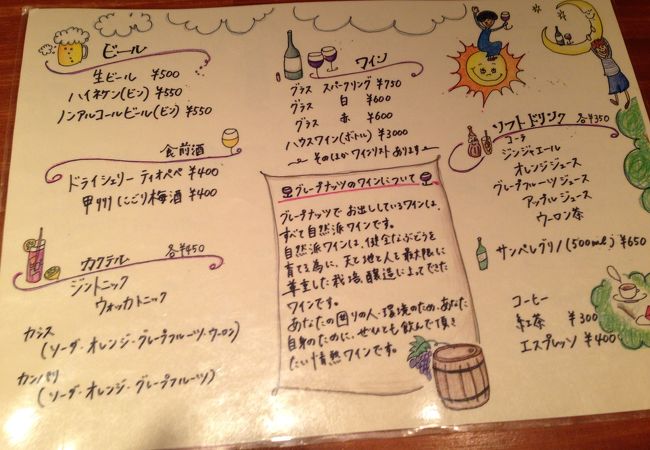 ビール
生ビール ¥500
ハイネケン(ビン) ¥550
ノンアルコールビール(ビン) ¥550
食前酒
ドライシェリー ティオペペ ¥400
甲州にごり梅酒 ¥400
カクテル 各¥450
ジントニック
ウォッカトニック
カシス
(ソーダ・オレンジ・グレープフルーツ・ウーロン)
カンパリ
(ソーダ・オレンジ・グレープフルーツ)
ワイン
グラス スパークリング ¥750
グラス 白 ¥600
グラス 赤 ¥600
ハウスワイン(ボトル) ¥3000
~そのほかワインリストあります~
グレープナッツのワインについて
グレープナッツでお出ししているワインは、
すべて自然派ワインです。
自然派ワインは、健全なぶどうを
育てる為に、天と地と人を最大限に
尊重した栽培、醸造によってできた
ワインです。
あなたの周りの人・環境のため、あなた
自身のために、ぜひとも飲んで頂き
たい情熱ワインです。
ソフトドリンク 各¥350
コーラ
ジンジャエール
オレンジジュース
グレープフルーツジュース
アップルジュース
ウーロン茶
サンペレグリノ(500ml) ¥650
コーヒー
紅茶 ¥300
エスプレッソ ¥400